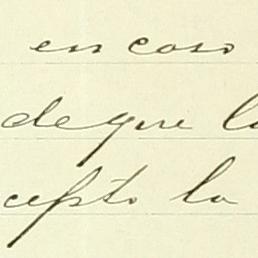 en caso
de que la
cepto la